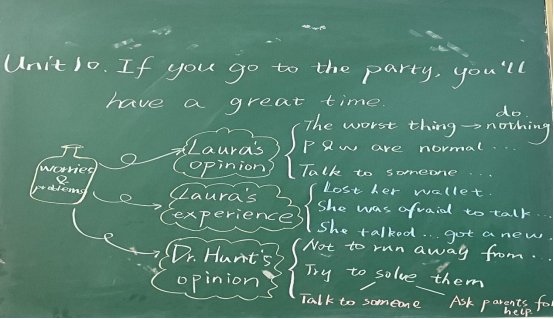 Unit 10. If you go to the party, you'll
have a great time.
worries
&
problems
Laura's
opinion
The worst thing → do nothing
P & w are normal ...
Talk to someone ...
Laura's
experience
Lost her wallet.
She was afraid to talk...
She talked... got a new...
Dr. Hunt's
opinion
Not to run away from...
Try to solve them
Talk to someone
Ask parents for
help